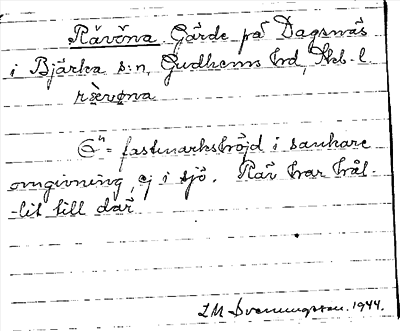 Rävöna Gärde på Dagsnäs
i Bjärka s:n, Gudhems hd, Skb. l.
rævøna
Ö^n = fastmarkshöjd i sankare
omgivning, ej i sjö. Räv har hål-
-lit till där
L M Svenungsson. 1944.